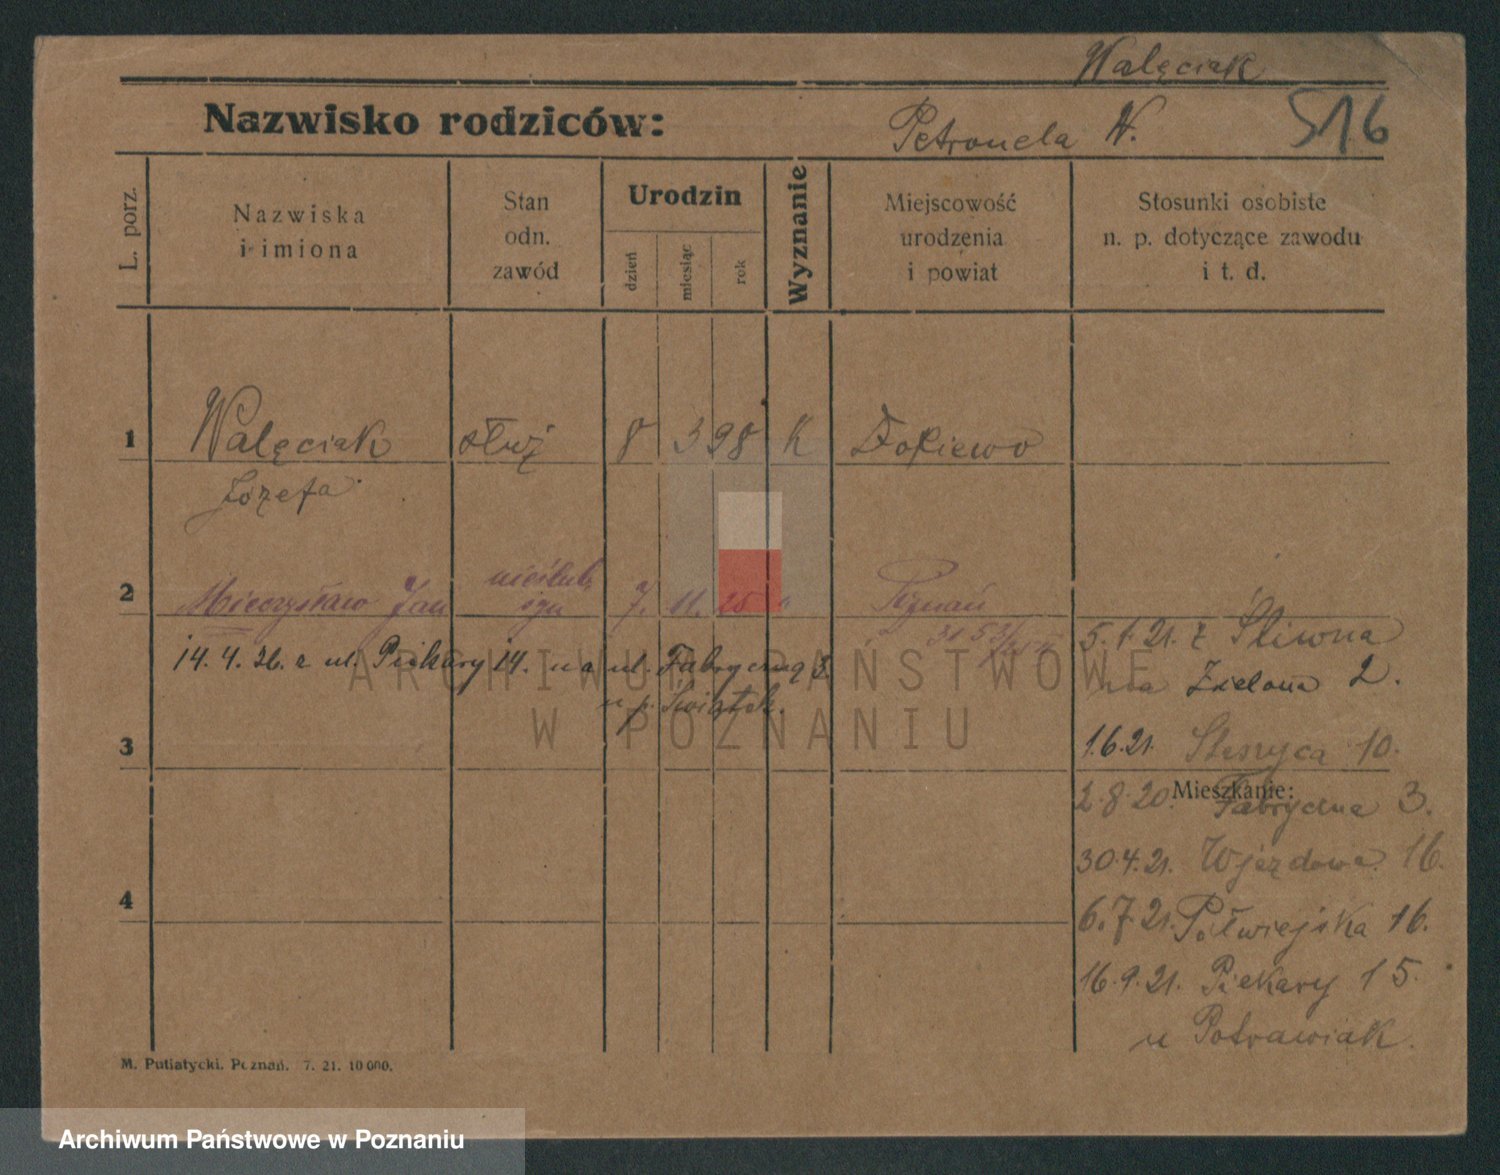 Walęciak
Nazwisko rodziców:
Petronela W.
516
L. porz.
Nazwiska
i imiona
Stan
odn.
zawód
Urodzin
dzień
miesiąc
rok
Wyznanie
Miejscowość
urodzenia
i powiat
Stosunki osobiste
n. p. dotyczące zawodu
i t. d.
1
Walęciak
Józefa
służ
8
3
98
K
2
Mieczysław Jan
nieślub.
syn
7.
11.
25
Poznań
14. 4. 26. z ul. Piekary 14. na ul. Fabryczną 3.
u p. Świątek.
5.1.21. z Śliwna
Zielona 2.
3
1.6.21. 10.
Mieszkanie:
2.8.20. Fabryczna 3.
30.4.21. Wjazdowa 16.
4
6.7.21. Półwiejska 16.
16.9.21. Piekary 15.
u Potrawiak.
M. Putiatycki. Poznań. 7. 21. 10 000.
ARCHIWUM PAŃSTWOWE
W POZNANIU
Archiwum Państwowe w Poznaniu